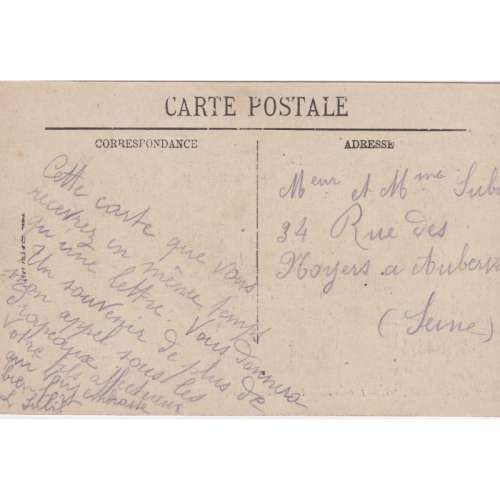 CARTE POSTALE
CORRESPONDANCE
Cette carte que vous
recevrez en même temps
qu'une lettre. Vous donnera
Un souvenir de plus de
mon appel sous les
rapeaux
otre fils affectueux
qui vous embrasse
bien fort
ADRESSE
Meur et Mme Subi
34 Rue des
Noyers a Auberv
(Seine)